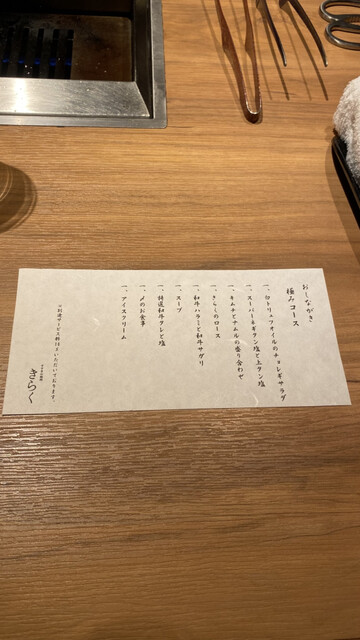 おしながき
極みコース
一、白トリュフオイルのチョレギサラダ
一、スーパーネギタン塩と上タン塩
一、キムチとナムルの盛り合わせ
一、きらくのロース
一、和牛ハラミと和牛サガリ
一、スープ
一、特選和牛タレと塩
一、〆のお食事
一、アイスクリーム
※別途サービス料はいただいております。
きらく